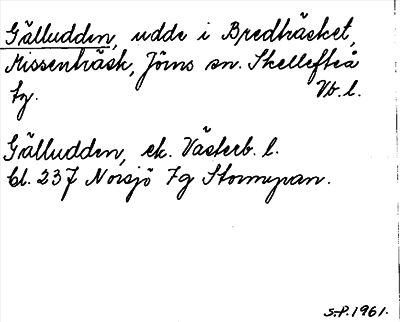 Gälludden, udde i Bredträsket,
Missenträsk, Jörns sn. Skellefteå
tg. Vb. l.
Gälludden, ek. Västerb. l.
bl. 237 Norsjö Fg
S.P. 1961.